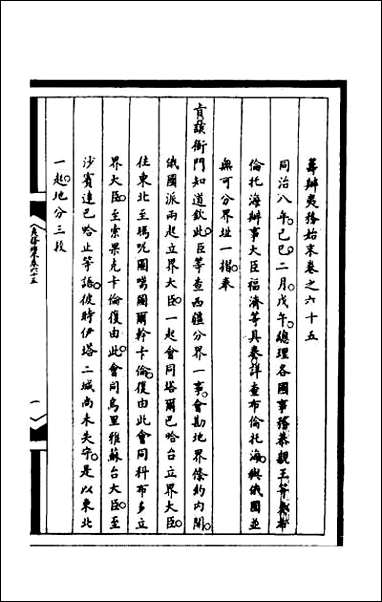 籌辦夷務始末卷之六十五
同治八年己巳二月戊午總理各國事務恭親王等奏布
倫托海辦事大臣福濟等具奏詳查布倫托海與俄國並
無可分界址一摺奉
旨該衙門知道欽此臣等查西疆分界一事會勘地界條約內開
俄國派兩起立界大臣一起會同塔爾巴哈台立界大臣
往東北至瑪呢圖噶圖勒幹卡倫復由此會同科布多立
界大臣至索果克卡倫復由此會同烏里雅蘇台大臣至
沙賓達巴哈止等語彼時伊塔二城尚未失守是以東北
一起地分三段